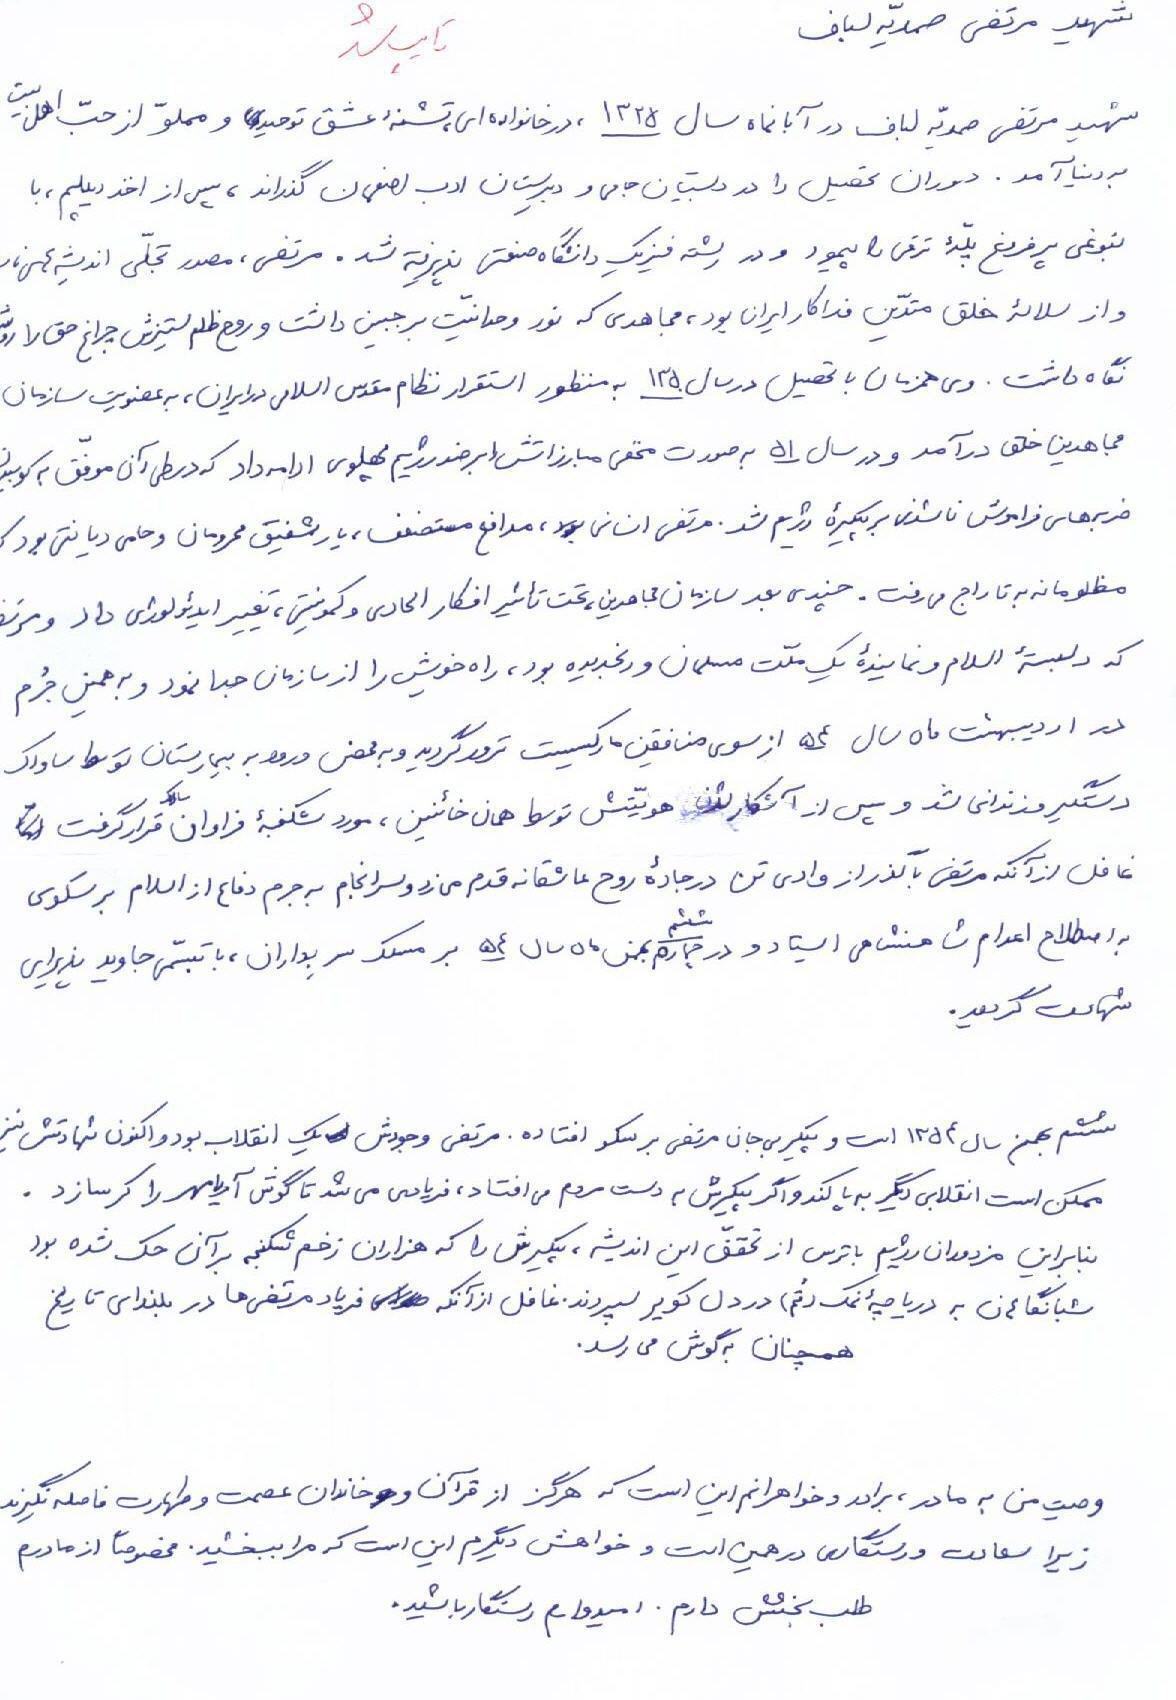 شهید مرتضی صمدیّه لباف
تایپ شد
شهید مرتضی صمدیّه لباف در آبانماه سال ۱۳۲۵ ، در خانواده‌ای تشنهٔ عشق توحیدی و مملوّ از حبّ اهل بیت
به دنیا آمد . دوران تحصیل را در دبستان جامی و دبیرستان ادب اصفهان گذراند ، پس از اخذ دیپلم ، با
نبوغی پر فروغ پلّهٔ ترقی را پیمود و در رشته فیزیک دانشگاه صنعتی پذیرفته شد . مرتضی ، مصدر تجلّی اندیشه‌های
و از سلالهٔ خلق متدّین فداکار ایران بود ، مجاهدی که نور وحدانیّت بر جبین داشت و روح ظلم ستیزش چراغ حق را
نگاه داشت . وی همزمان با تحصیل در سال ۱۳۵۰ به منظور استقرار نظام مقدس اسلامی در ایران ، به عضویت سازمان
مجاهدین خلق در آمد و در سال ۵۱ به صورت مخفی مبارزاتش را بر ضد رژیم پهلوی ادامه داد که در طی آن موفّق به
ضربه‌های فراموش ناشدنی بر پیکرهٔ رژیم شد . مرتضی انسانی بود ، مدافع مستضعف ، یار شفیق محرومان و حامی دیانتی بود
مظلومانه به تاراج می‌رفت . چندی بعد سازمان مجاهدین تحت تأثیر افکار الحادی و کمونیستی ، تغییر ایدئولوژی داد و
که دلبستهٔ اسلام و نمایندهٔ یک ملّت مسلمان و رنجدیده بود ، راه خویش را از سازمان جدا نمود و به همین جُرم
در اردیبهشت ماه سال ۵۴ از سوی منافقین مارکسیست ترور گردید و به محض ورود به بیمارستان توسط ساواک
دستگیر و زندانی شد و پس از آشکار شدن هویّتش توسط همان خائنین ، مورد شکنجهٔ فراوان ساواک قرار گرفت
غافل از آنکه مرتضی با گذر از وادی تن در جادهٔ روح عاشقانه قدم می‌زد و سرانجام به جرم دفاع از اسلام بر سکوی
به اصطلاح اعدام شاهنشاهی ایستاد و در ششم بهمن ماه سال ۵۴ بر مسلک سر بداران ، با تبسّمی جاوید پذیرای
شهادت گردید .
ششم بهمن سال ۱۳۵۴ است و پیکر بی‌جان مرتضی بر سکو افتاده . مرتضی وجودش یک انقلاب بود و اکنون شهادتش نیز
ممکن است انقلابی دیگر به پا کند و اگر پیکرش به دست مردم می‌افتاد ، فریادی می‌شد تا گوش آریامهر را کر سازد .
بنابراین مزدوران رژیم با ترس از تحقّق این اندیشه ، پیکرش را که هزاران زخم شکنجه بر آن حک شده بود
شبانگاهان به دریاچهٔ نمک (قم) در دل کویر سپردند . غافل از آنکه فریاد مرتضی‌ها در بلندای تاریخ
همچنان به گوش می‌رسد .
وصیت من به مادر ، برادر و خواهرانم این است که هرگز از قرآن و خاندان عصمت و طهارت فاصله نگیرند
زیرا سعادت و رستگاری در همین است و خواهش دیگرم این است که مرا ببخشید . مخصوصاً از مادرم
طلب بخشش دارم . امیدوارم رستگار باشید .